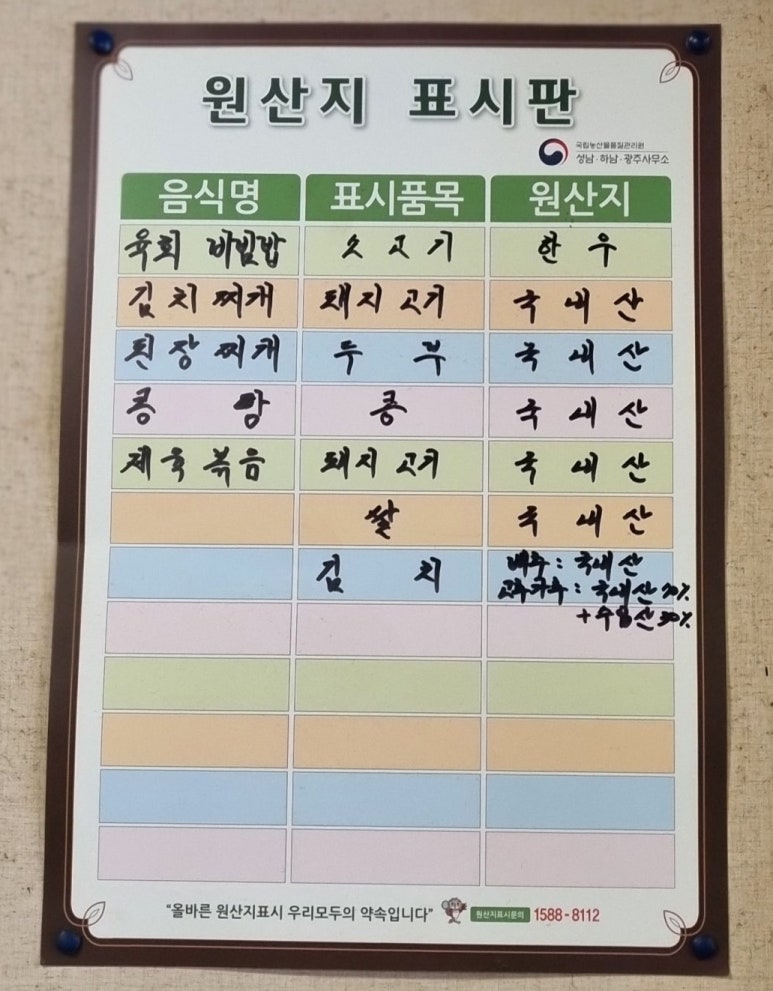 원산지 표시판
국립농산물품질관리원
성남·하남·광주사무소
음식명 표시품목 원산지
육회 비빔밥 소고기 한우
김치찌개 돼지고기 국내산
된장찌개 두부 국내산
콩탕 콩 국내산
제육볶음 돼지고기 국내산
쌀 국내산
김치 배추 : 국내산
고추가루 : 국내산 70%
+ 수입산 30%
"올바른 원산지표시 우리모두의 약속입니다" 원산지표시문의 1588-8112